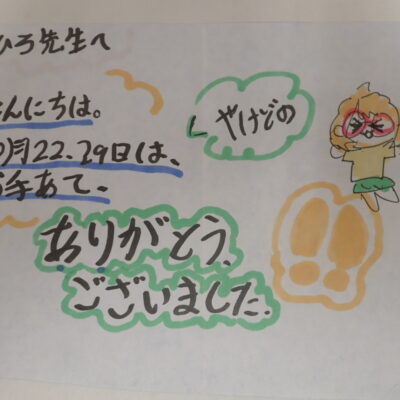 ひろ先生へ
こんにちは。
月22、29日は、
やけどの
手あて、
ありがとう、
ございました。